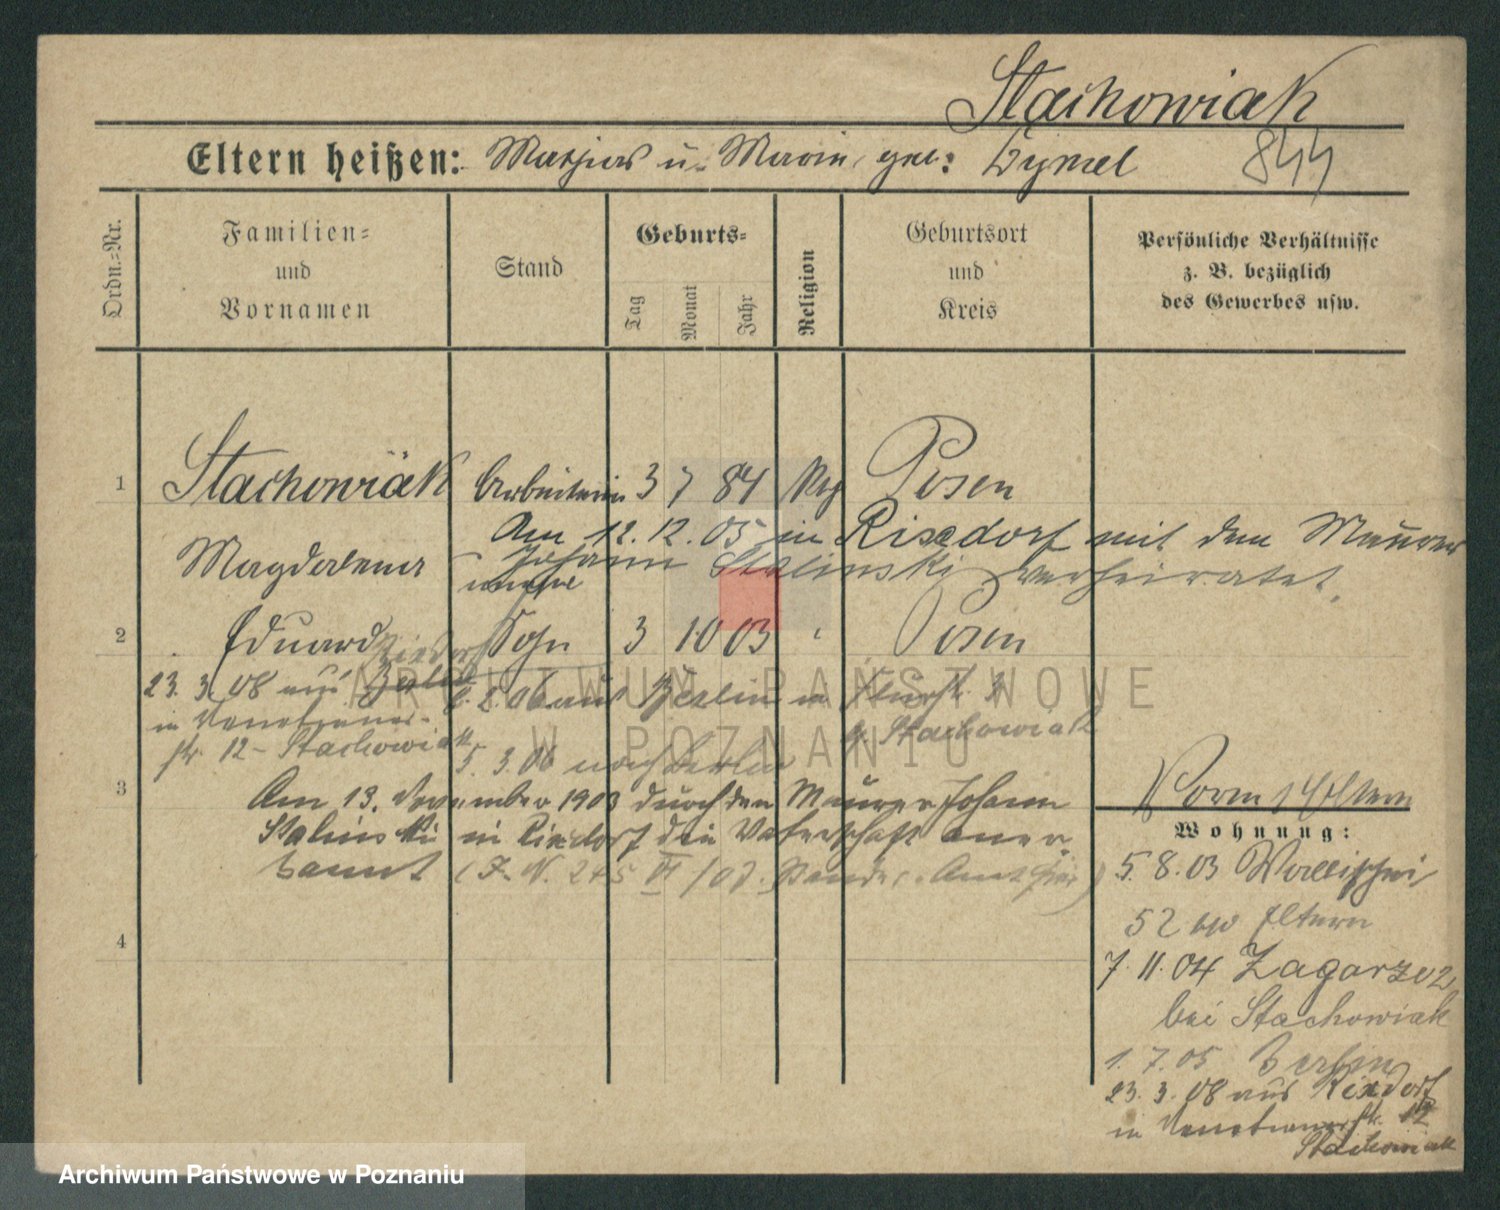 Stachowiak
Eltern heißen: Mathias u. Marie, geb: Dymel 844
Ordn.-Nr.
Familien- und Vornamen
Stand
Geburts-
Tag
Monat
Jahr
Religion
Geburtsort und Kreis
Persönliche Verhältnisse z. B. bezüglich des Gewerbes usw.
1 Stachowiak Arbeiterin 3 7 84 Posen
Am 12. 12. 05 in Rixdorf mit dem Maurer
Magdalena Johann Stalinski verheiratet.
2 Eduard Sohn 3 10 03 Posen
23. 3. 08 aus Rixdorf
2. 06 aus Berlin in
in
str. 12 - Stachowiak
Stachowiak
5. 3. 06 nach Berlin
3 Am 13. November 1903 durch den Maurer Johann
Stalinski in Rixdorf die Vaterschaft aner
kannt
Eltern
Wohnung:
5. 8. 03 Wallischei
52 Eltern
7. 11. 04 Zagorze 2
bei Stachowiak
4
1. 7. 05 Berlin
23. 3. 08 aus Rixdorf
in str. 12
Stachowiak
ARCHIWUM PAŃSTWOWE
W POZNANIU
Archiwum Państwowe w Poznaniu